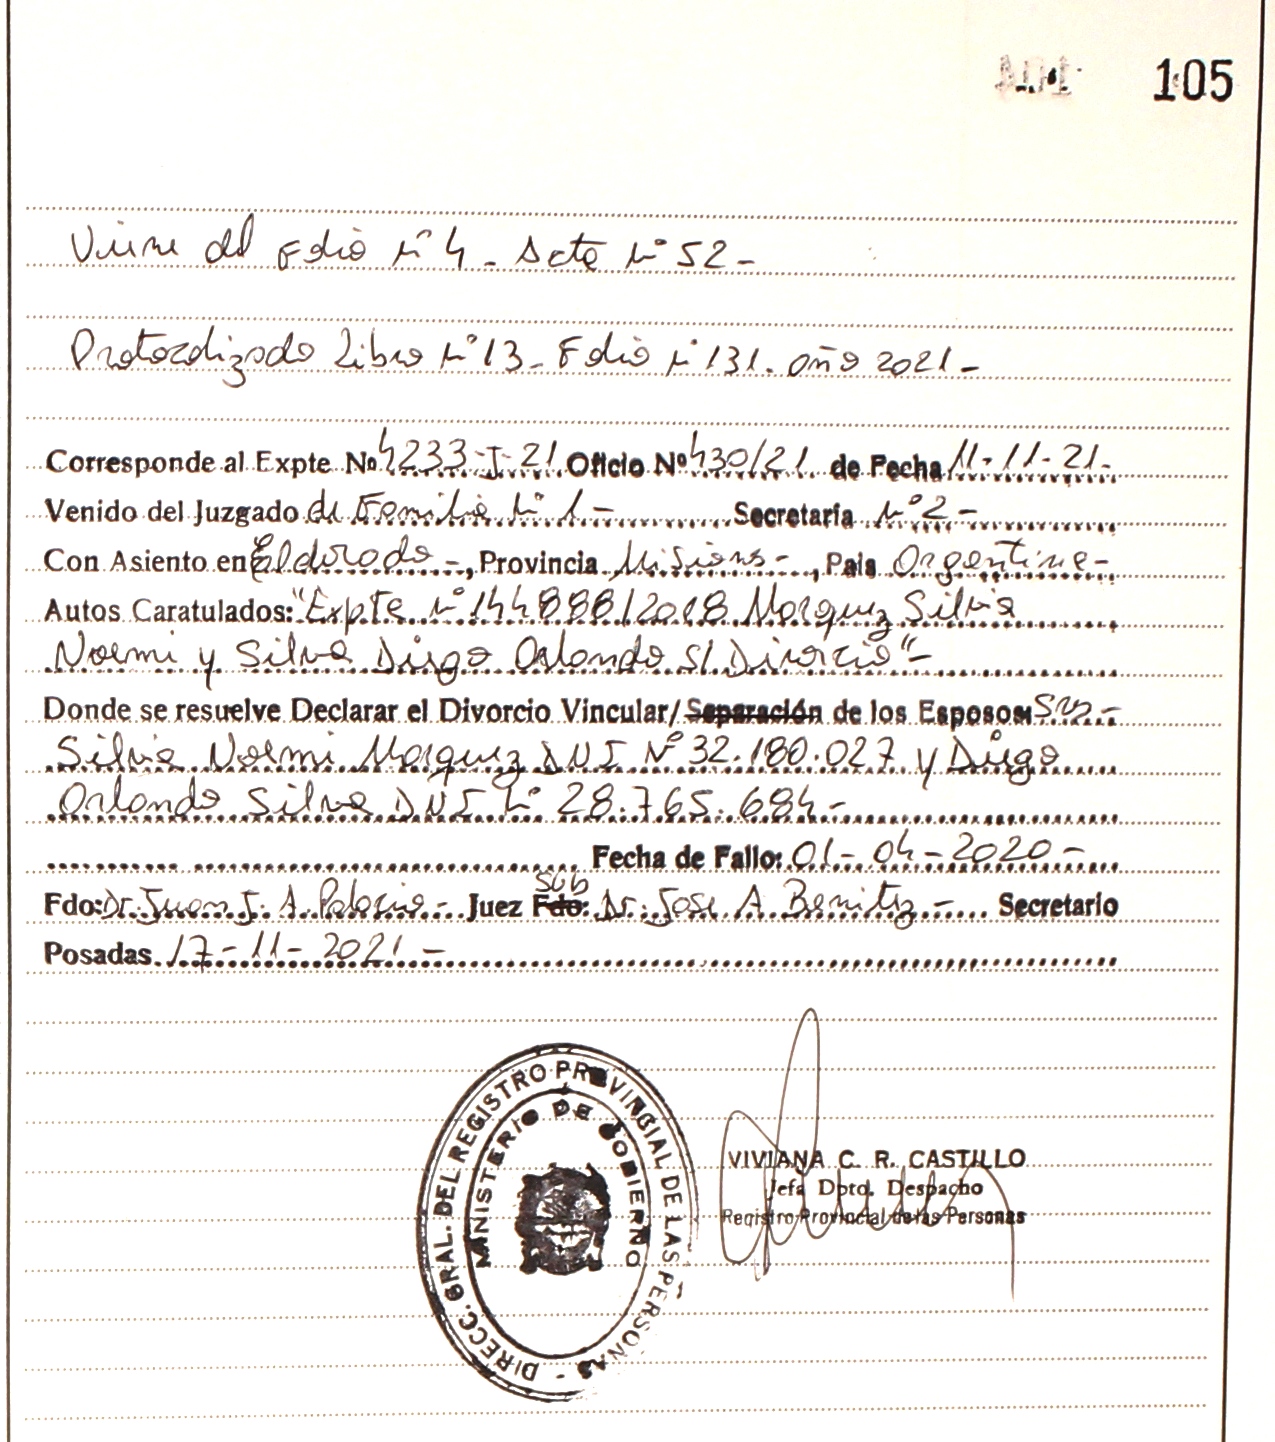 105
Viene del Folio Nº 4 - Acta Nº 52 -
Protocolizado Libro Nº 13 - Folio Nº 131. año 2021 -
Corresponde al Expte Nº 4233-I-21 Oficio Nº 430/21 de Fecha 11-11-21.
Venido del Juzgado de Familia Nº 1 - Secretaría Nº 2 -
Con Asiento en Eldorado -, Provincia Misiones -, País Argentina -
Autos Caratulados: "Expte Nº 144888/2018 Marquez Silvia
Noemi y Silva Diego Orlando s/ Divorcio" -
Donde se resuelve Declarar el Divorcio Vincular/Separación de los Esposos: Sres -
Silvia Noemi Marquez DNI Nº 32.180.027 y Diego
Orlando Silva DNI Nº 28.765.684 -
Fecha de Fallo: 01-04-2020 -
Sub
Fdo: Dr. Juan J. A. Palacio - Juez Fdo: Dr. Jose A Benitez - Secretario
Posadas 17-11-2021 -
DIRECC. GRAL. DEL REGISTRO PROVINCIAL DE LAS PERSONAS -
MINISTERIO DE GOBIERNO
VIVIANA C. R. CASTILLO
Jefa Dpto. Despacho
Registro Provincial de las Personas